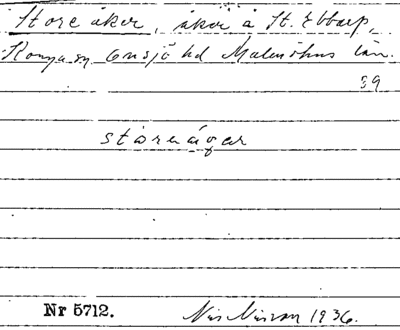 Store åker, åker å St. Ebbarp,
Konga sn Onsjö hd Malmöhus län.
39
storeågar
Nr 5712.
Nils Nilsson 1936.